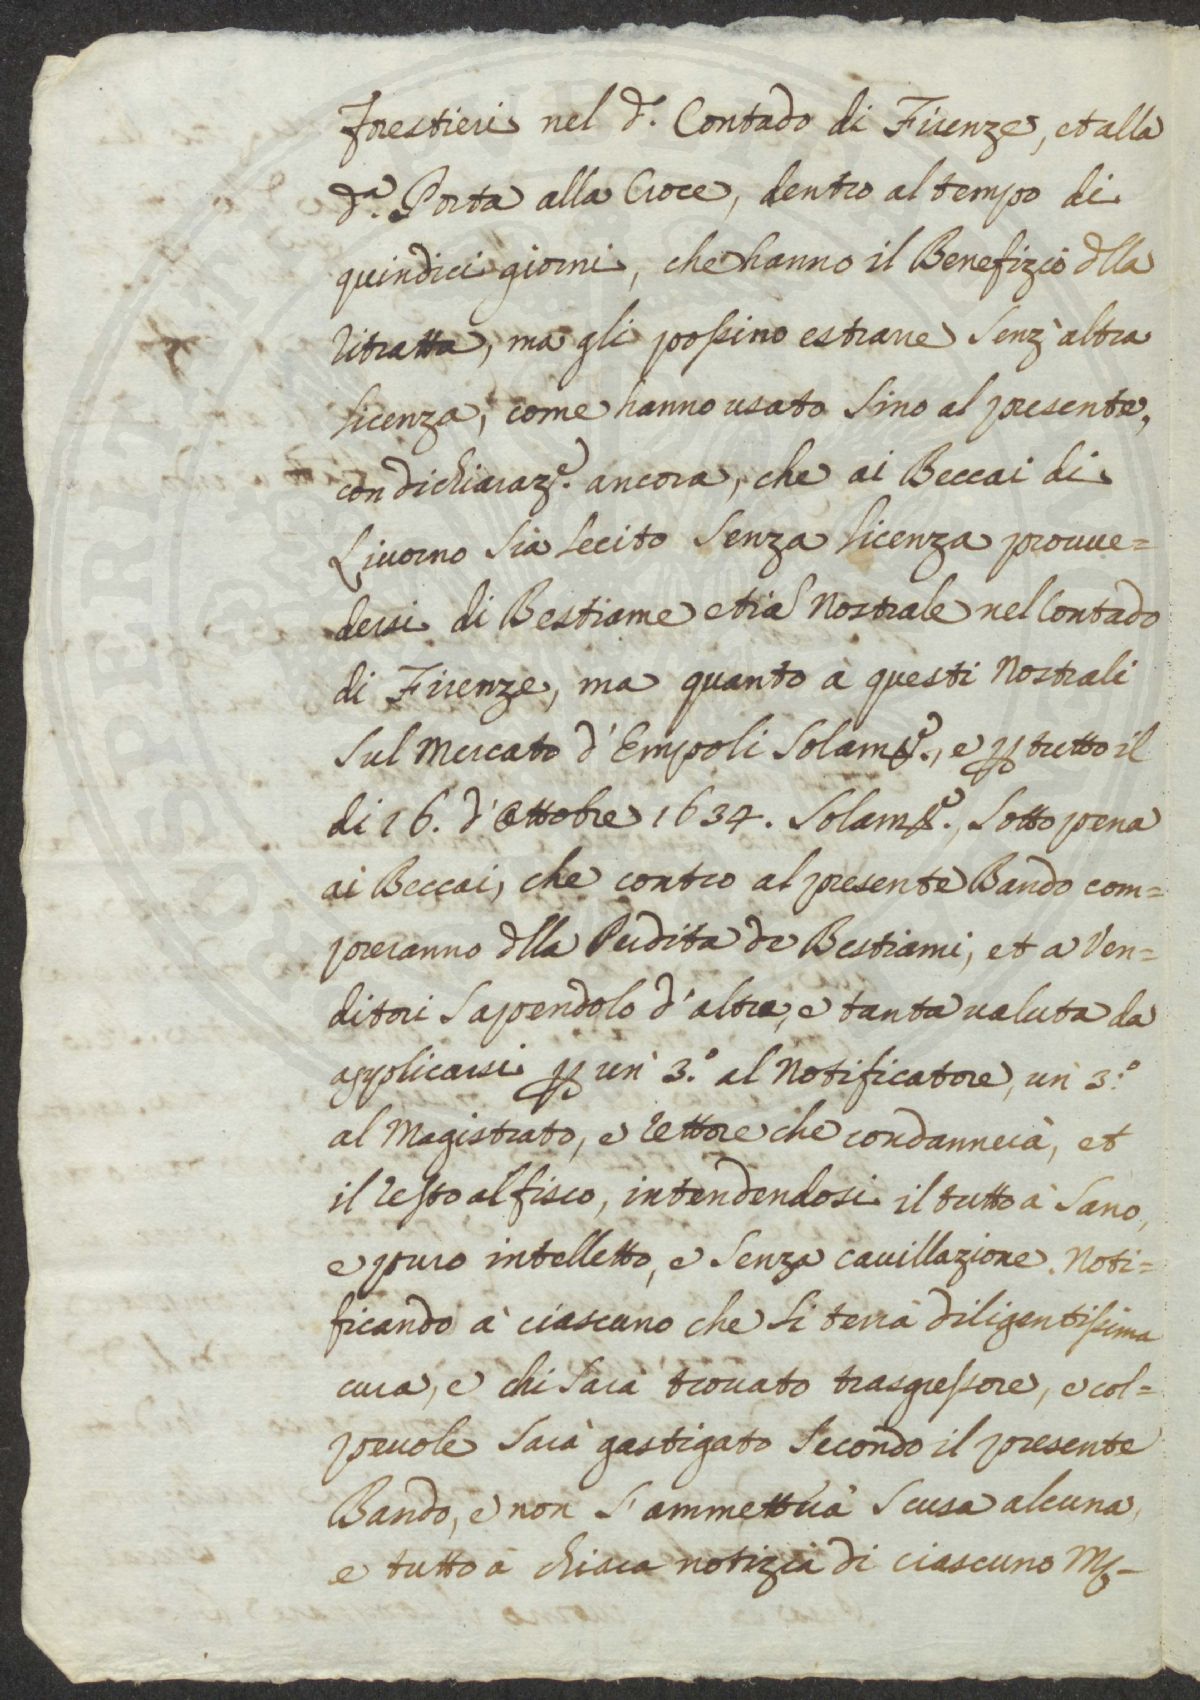 forestieri nel d.º Contado di Firenze, et alla
d.ª Porta alla Croce, dentro al tempo di
quindici giorni, che hanno il Benefizio dlla
ritratta, ma gli possino estrarre senz'altra
licenza, come hanno usato sino al presente,
con dichiaraz.e ancora, che ai Beccai di
Livorno sia lecito senza licenza provve=
dersi di Bestiame etiā Nostrale nel Contado
di Firenze, ma quanto à questi Nostrali
sul Mercato d'Empoli solam.e, e p tutto il
di 16. d'Ottobre 1634. solam.e, sotto pena
ai Beccai, che contro al presente Bando com=
preranno dlla Perdita de Bestiami, et a Ven=
ditori sapendolo d'altra, e tanta valuta da
applicarsi p un 3.º al Notificatore, un 3.º
al Magistrato, e rettore che condannerà, et
il resto al fisco, intendendosi il tutto à sano,
e puro intelletto, e senza cavillazione. Noti=
ficando à ciascuno che si terrà diligentissima
cura, e chi sarà trovato trasgressore, e col=
pevole sarà gastigato secondo il presente
Bando, e non s'ammetterà scusa alcuna,
e tutto à chiara notizia di ciascuno